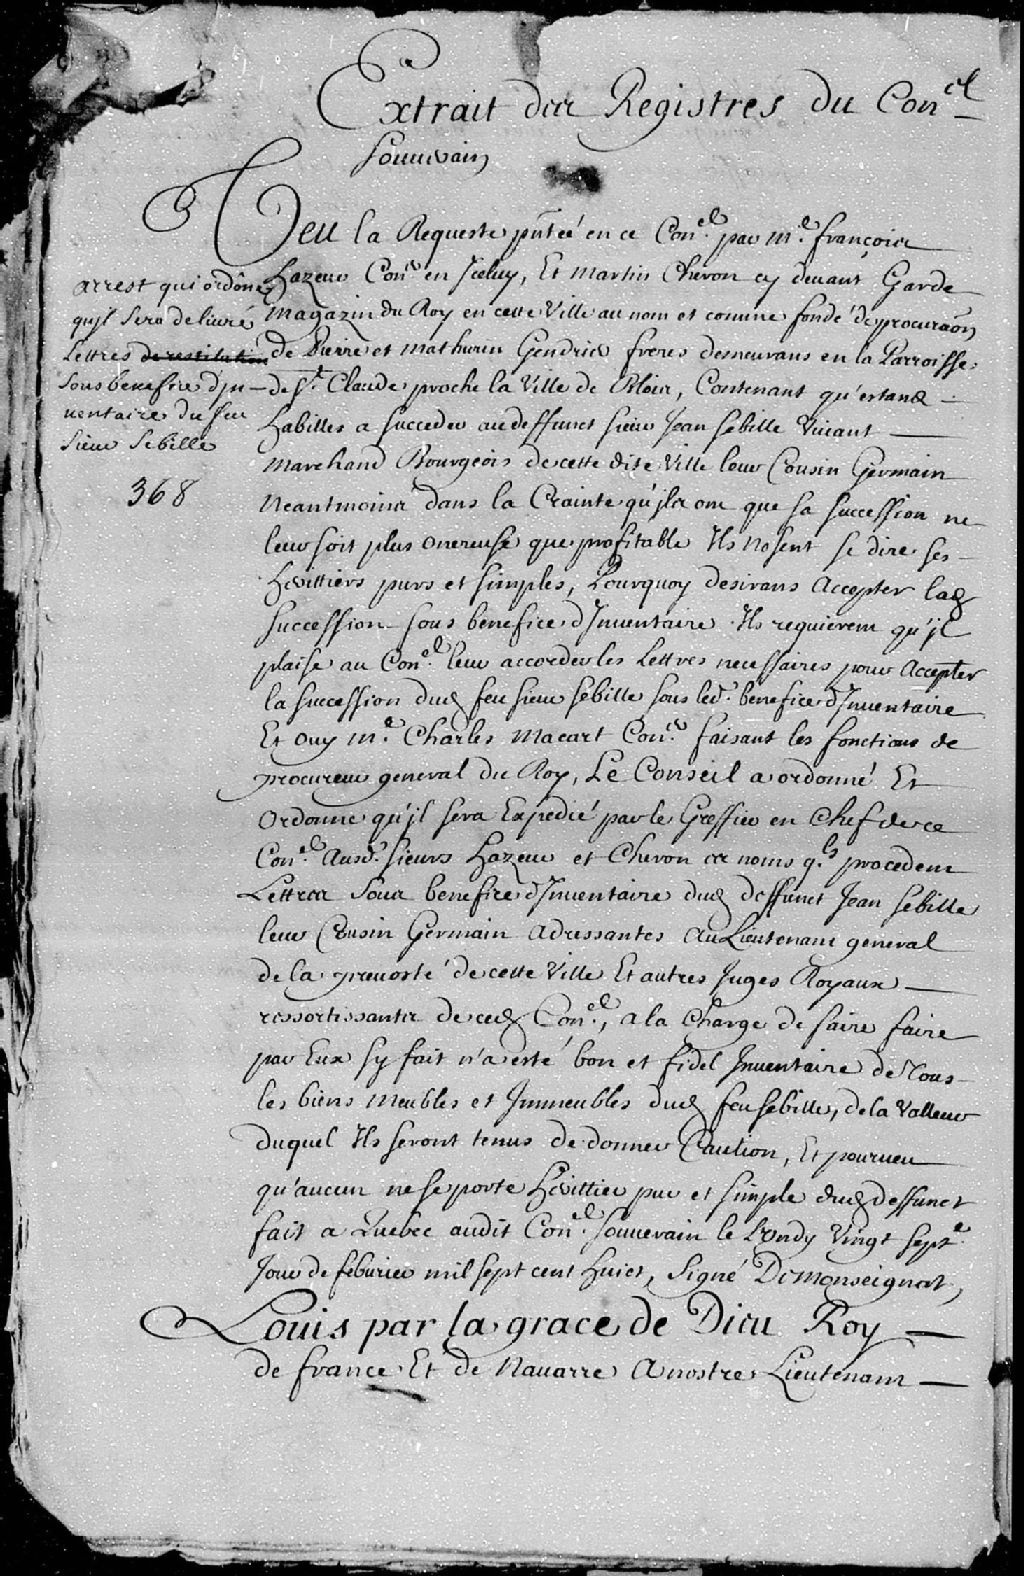 Extrait des Registres du Con.el
Souuerain
Veu la Requeste pñteé en ce Con.el par m.e françois
hazeur Con.er en Jceluy, Et martin Cheron cy deuant Garde
magazin du Roy en cette Ville au nom et comme fondé de procuraõn
de Pierre et mathurin Gendrie freres demeurans en la Parroisse
de S.t Claude proche la Ville de Blois, Contenant qu'estans
habilles a succeder au deffunct sieur Jean sebille Viuant
marchand Bourgeois de cette dite Ville leur Cousin Germain
Neantmoins dans la Crainte qu'jls ont que sa succession ne
leur soit plus onereuse que profitable Ils nosent se dire ses
herittiers purs et simples, Pourquoy desirans Accepter lad
succession sous benefice d'Jnuentaire Ils requierent qu'jl
plaise au Con.el leur accorder les Lettres necessaires pour Accepter
la succession dud feu sieur sebille sous led.t benefice d'Jnuentaire
Et ouy m.e Charles macart Con.er faisant les fonctions de
procureur general du Roy, Le Conseil a ordonné Et
ordonne qu'jl sera Expedié par le Greffier en Chef de ce
Con.el Ausd.s sieurs hazeur et Cheron es noms q.ls procedent
Lettres sous benefice d'Jnuentaire dud deffunct Jean sebille
leur Cousin Germain adressantes au Lieutenant general
de la preuosté de cette Ville Et autres Juges Royaux
ressortissants de ced Con.el, a la Charge de faire faire
par Eux sy fait n'a esté bon et fidel Jnuentaire de Tous
les biens meubles et Jmmeubles dud feu sebille, de la Valleur
duquel Ils seront tenus de donner Caution, Et pourueu
qu'aucun ne se porte herittier pur et simple dud deffunct
fait a Quebec audit Con.el souuerain le Lundy Vingt sept.e
Jour de feburier mil sept cent huict, Signé Demonseignat,
Louis par la grace de Dieu Roy
de france Et de Nauarre A nostre Lieutenant
arrest qui ordonne
qujl sera deliuré
Lettres de restitution
sous benefice d'jn-
uentaire du feu
sieur sebille
368